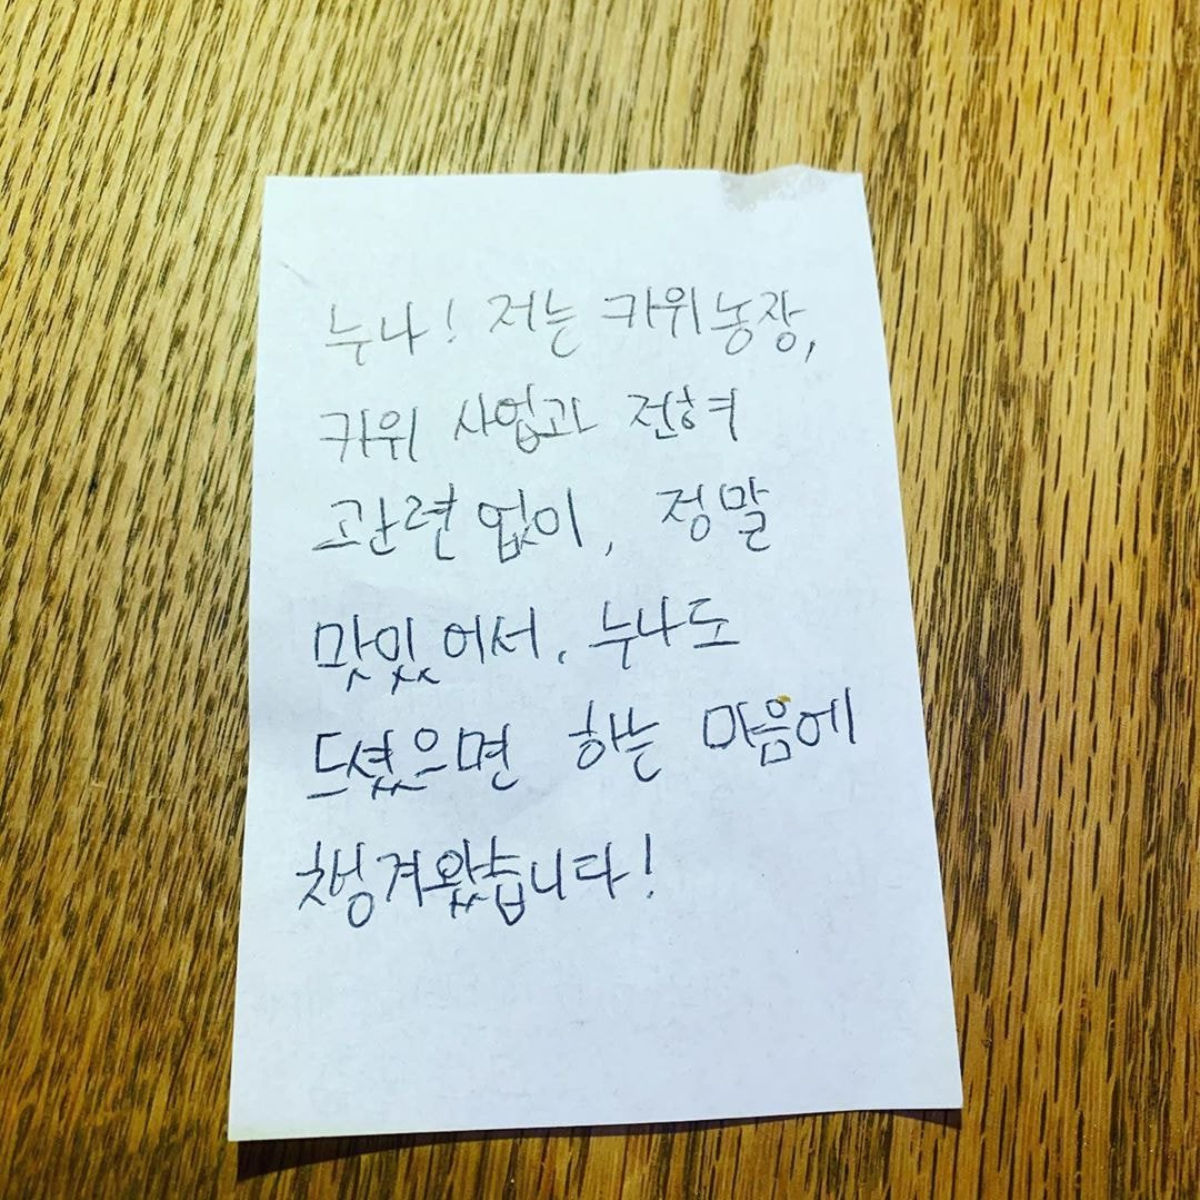 누나! 저는 카위농장,
카위 사업과 전혀
관련없이, 정말
맛있어서, 누나도
드셨으면 하는 마음에
챙겨왔습니다!